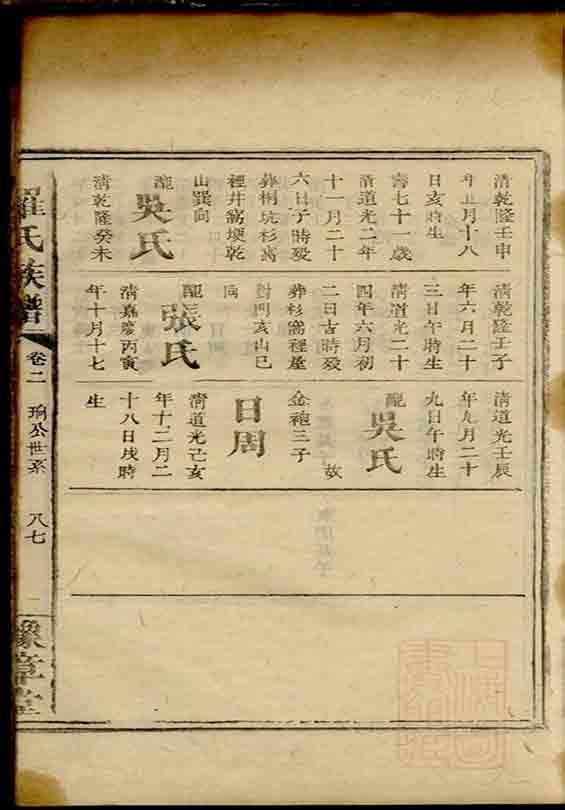 清乾隆壬申
年五月十八
日亥時生
壽七十一歲
清道光二年
十一月二十
六日子時殁
葬桐坑杉窩
裡井窩埂乾
山巽向
配
吳氏
清乾隆癸未
清乾隆壬子
年六月二十
三日午時生
清道光二十
四年六月初
二日吉時殁
葬杉窩裡屋
對門亥山巳
向
配
張氏
清嘉慶丙寅
年十月十七
清道光壬辰
年九月二十
九日午時生
配
吳氏
故
金袍三子
日周
清道光己亥
年十二月二
十八日戌時
生
羅氏族譜
卷二
瑜公世系
八七
豫章堂